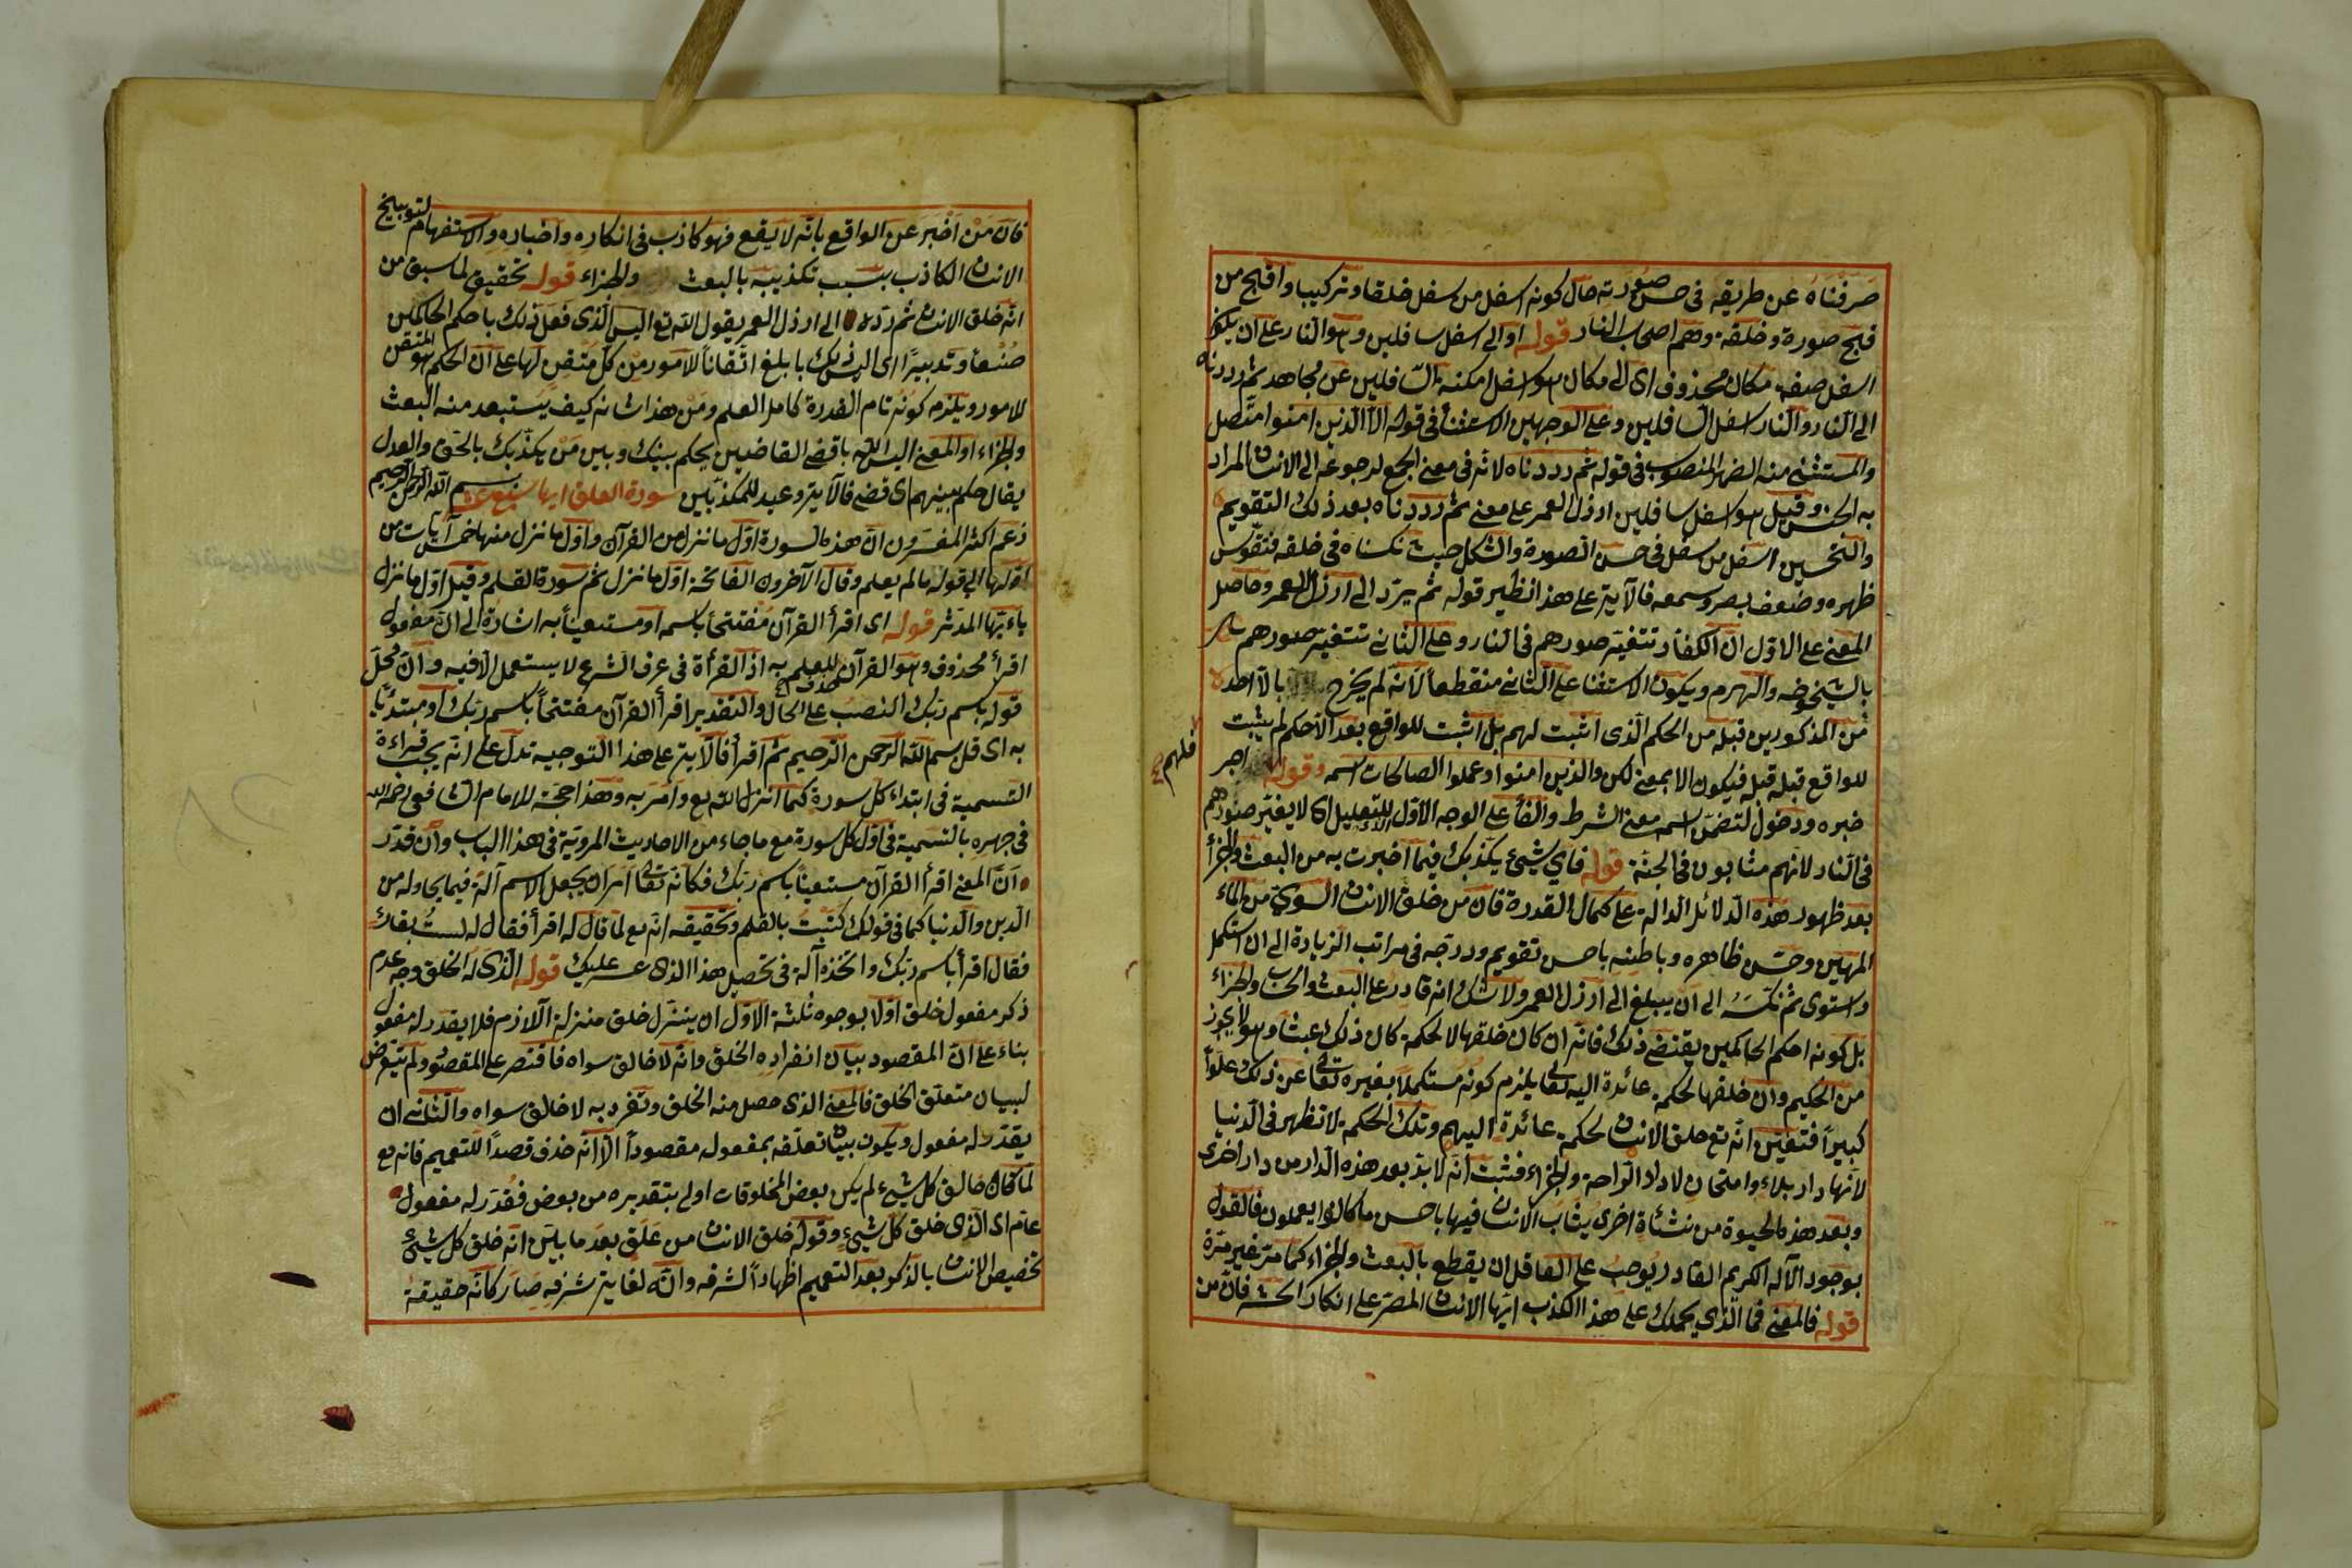 صرفناه عن طريقه فى حسن صورته حال كونه اسفل من سفل خلقا وتركيبا واقبح من
قبح صورة وخلقة وهم اصحاب النار قوله او الى اسفل سافلين وهو النار على ان يكون
اسفل صفة مكان محذوف اى الى مكان هو اسفل امكنة السافلين عن مجاهد ثم رددناه
الى النار والنار اسفل السافلين وعلى الوجهين الاستثناء فى قوله الا الذين امنوا متصل
والمستثنى منه الضمير المنصوب فى قوله ثم رددناه لانه فى معنى الجمع لرجوعه الى الانسان المراد
به الجنس وقيل هو اسفل سافلين ارذل العمر على معنى ثم رددناه بعد ذلك التقويم
والتحسين اسفل من سفل فى حسن الصورة والشكل حيث نكسناه فى خلقه فتقوس
ظهره وضعف بصره وسمعه فالآية على هذا نظير قوله ثم يرد الى ارذل العمر وحاصل
المعنى على الاول ان الكفار تتغير صورهم فى النار وعلى الثانى تتغير صورهم
بالشيخوخة والهرم ويكون الاستثناء على الثانى منقطعا لانه لم يخرج بالا احد
من المذكورين قبله من الحكم الذى اثبت لهم بل اثبت للواقع بعد الا حكم لم يثبت
للواقع قبله قبله فيكون الا بمعنى لكن والذين امنوا وعملوا الصالحات اسمه وقوله اجر
فلهم
خبره ودخول لتضمن اسمه معنى الشرط والفاء على الوجه الاول للتعليل اى لا يغير صورهم
فى النار لانهم مثابون فى الجنة قوله فاى شىء يكذبك فيما اخبرت به من البعث والجزاء
بعد ظهور هذه الدلائل الدالة على كمال القدرة فان من خلق الانسان السوى من الماء
المهين وحسن ظاهره وباطنه باحسن تقويم ودرجه فى مراتب الزيادة الى ان استكمل
واستوى ثم نكسه الى ان يبلغ الى ارذل العمر ولا شك انه قادر على البعث والحساب والجزاء
بل كونه احكم الحاكمين يقتضى ذلك فانه ان كان خلقها لا لحكمة كان ذلك عبثا وهو لا يجوز
من الحكيم وان خلقها لحكمة عائدة اليه تعالى يلزم كونه مستكملا بغيره تعالى عن ذلك علوا
كبيرا فتعين انه تع خلق الانسان لحكمة عائدة اليهم وتلك الحكمة لا تظهر فى الدنيا
لانها دار بلاء وامتحان لا دار الراحة والجزاء فثبت انه لا بد بعد هذه الدار من دار اخرى
وبعد هذه الحيوة من نشأة اخرى يثاب الانسان فيها باحسن ما كانوا يعملون فالقول
بوجود الاله الكريم القادر يوجب على العاقل ان يقطع بالبعث والجزاء كما مر غير مرة
قوله فالمعنى فما الذى يحملك على هذا الكذب ايها الانسان المصر على انكار الحشر فان من
فان من اخبر عن الواقع بانه لا يقع فهو كاذب فى انكاره واخباره والاستفهام لتوبيخ
الانسان الكاذب بسبب تكذيبه بالبعث والجزاء قوله تحقيق لما سبق من
انه خلق الانسان ثم رده الى ارذل العمر يقول الله تع اليس الذى فعل ذلك باحكم الحاكمين
صنعا وتدبيرا اى اليس ذلك بابلغ اتقانا للامور من كل متقن لها على ان الحكم هو المتقن
للامور ويلزم كونه تام القدرة كامل العلم ومن هذا شانه كيف يستبعد منه البعث
والجزاء او المعنى اليس الله باقضى القاضيين يحكم بينك وبين من يكذبك بالحق والعدل
يقال حكم بينهم اى قضى فالآية وعيد للمكذبين سورة العلق ايها بسم الله الرحمن الرحيم
زعم اكثر المفسرون ان هذه السورة اول ما نزل من القرآن واول ما نزل منها خمس آيات من
اولها الى قوله ما لم يعلم وقال الآخرون الفاتحة اول ما نزل ثم سورة القلم وقيل اول ما نزل
ياءيها المدثر قوله اى اقرأ القرآن مفتتحا باسمه او مستعينا به اشارة الى ان مفعول
اقرأ محذوف وهو القرآن للعلم به اذ القرأة فى عرف الشرع لا يستعمل الا فيه وان محل
قوله باسم ربك النصب على الحال والتقدير اقرأ القرآن مفتتحا باسم ربك او مبتدئا
به اى قل بسم الله الرحمن الرحيم ثم اقرأ فالآية على هذا التوجيه تدل على انه يجب قراءة
التسمية فى ابتداء كل سورة كما انزل الله تع وامر به وهذا حجة للامام الشافعى رحمه الله
فى جهره بالتسمية فى اول كل سورة مع ما جاء من الاحاديث المروية فى هذا الباب وان قدر
ان المعنى اقرأ القرآن مستعينا باسم ربك فكانه تعالى امر ان يجعل الاسم آلة فيما يحاوله من
الدين والدنيا كما فى قولك كتبت بالقلم وتحقيقه انه تع لما قال له اقرأ فقال له لست بقارئ
فقال اقرأ باسم ربك واتخذه آلة فى تحصيل هذا الذى عسر عليك قوله الذى له الخلق وجه عدم
ذكر مفعول خلق اولا بوجوه ثلثة الاول ان ينزل خلق منزلة اللازم فلا يقدر له مفعول
بناء على ان المقصود بيان انفراده الخلق وانه لا خالق سواه فاقتصر على المقصود ولم يتعرض
لبيان متعلق الخلق فالمعنى الذى حصل منه الخلق وتفرد به لا خالق سواه والثانى ان
يقدر له مفعول ويكون بيان تعلقه بمفعوله مقصودا الا انه حذف قصدا للتعميم فانه تع
لما كان خالق كل شىء لم يكن بعض المخلوقات اولى بتقديره من بعض فقدر له مفعول
عام اى الذى خلق كل شىء وقوله خلق الانسان من علق بعد ما بين انه خلق كل شىء
تخصيص الانسان بالذكر بعد التعميم اظهارا لشرفه وانه لغاية شرفه صار كانه حقيقة